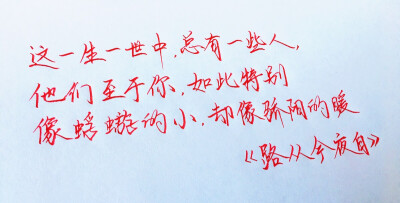 这一生一世中,总有一些人,
他们至于你,如此特别
像蟋蟀的小,却像骄阳的暖
《路从今夜白》